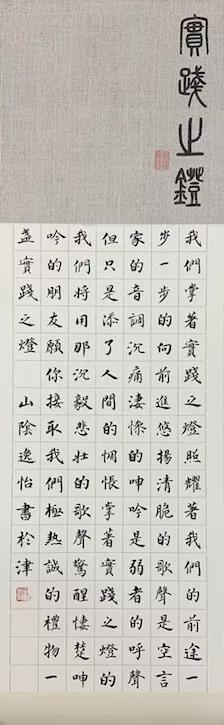 實踐之鐙
我們掌著實踐之燈照耀著我們的前途一
步一步的向前進悠揚清脆的歌聲是空言
家的音調沉痛淒慘的呻吟是弱者的呼聲
但只是添了人間的惆悵掌著實踐之燈的
我們將用那沉毅悲壯的歌聲驚醒悽楚呻
吟的朋友願你接取我們極熱誠的禮物一
盞實踐之燈 山陰逸怡書於津